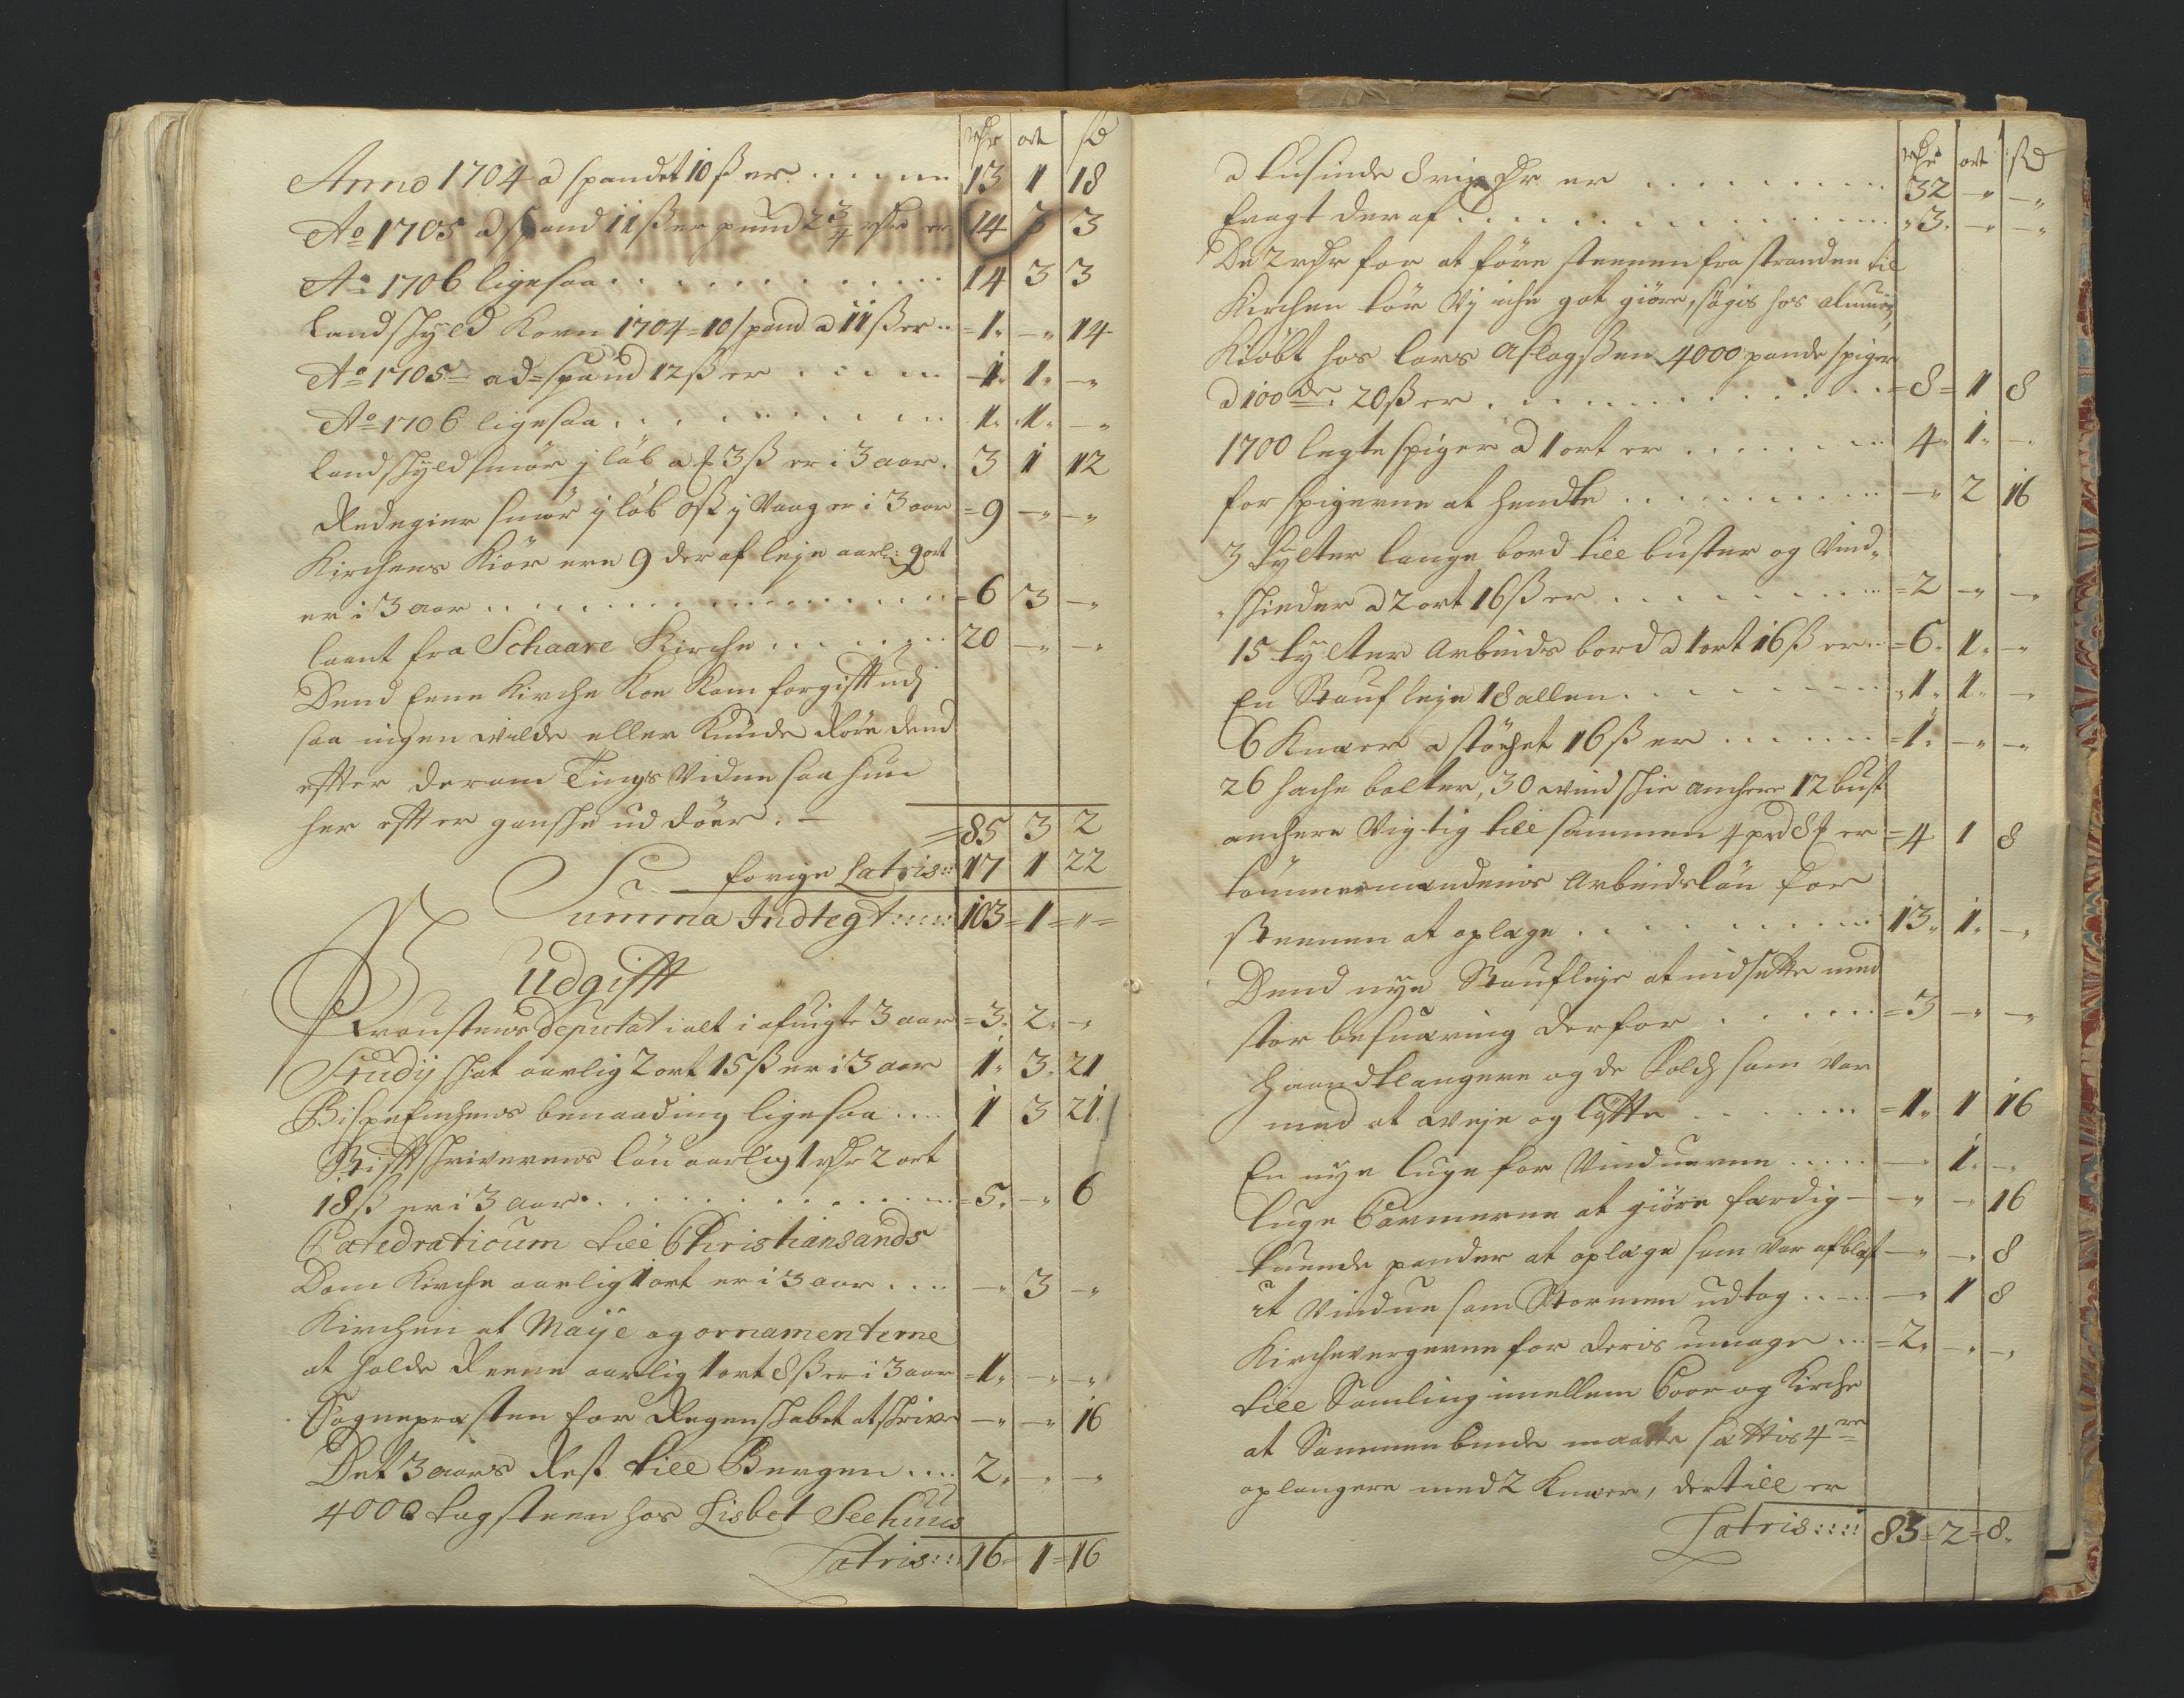 rdr ort ß
Anno 1704 a spandet 10 ß er ...... 13 1 18
Ao 1705 a spand 11 ß er pund 2 3/4 rdr er 14 3 3
Ao 1706 ligesaa ............ 14 3 3
landskyld Korn 1704 = 10 spand a 11 ß er .. = 1 „ — „ 14
Ao 1705 = ad = spand 12 ß er ..... 1 „ 1 „ — „
Ao 1706 ligesaa ........... 1 „ 1 „ — „
landskyld smör j löb a ℔ 3 ß er i 3 aar . 3 1 12
smör j löb j Vaag er i 3 aar = 9 — „ — „
Kirchens Kiör ere 9 deraf leje aarl: 9 ort
er i 3 aar .............. = 6 3 — „
laant fra Schaare Kirche ...... 20 — „ — „
Dend Eene Kirche Koe Kom forgifft udj
saa ingen wilde eller Kunde före dend
effter derom Tings Vidne saa hun
her effter ganske ud döer . —
= 85 3 2
forige Latris :: 17 1 22
Summa Indtegt ::::: 103 = 1 = „ =
Udgifft
Proustens deputat i alt i afvigte 3 aar = 3 „ 2 „ — „
Studij skat aarlig 2 ort 15 ß er i 3 aar 1 „ 3 „ 21
Bispe Enchens benaading ligesaa .... 1 3 21
Stifftskriverens lön aarlig 1 rdr 2 ort
18 ß er i 3 aar .......... = 5 „ — „ 6
Catedraticum till Christiansands
Dom Kirche aarlig 1 ort er i 3 aar .... — „ 3 — „
Kirchen at Maije og ornamenterne
at holde Reene aarlig 1 ort 8 ß er i 3 aar = 1 „ — „ — „
Sognepræsten for Regenskabet at skrive — „ — „ 16
Det 3 aars Rest till Bergen .... 2 „ — „ — „
4000 tagsteen hos Lisbet Seehuus
Latris ::: 16 = 1 = 16
rdr ort ß
a tusinde 8 rix dr er ......... 32 — „ — „
fragt deraf ............. „ 3 „ — „ — „
De 2 rdr for at före steenen fra stranden til
Kirchen tör Vj iche got giöre, söges hos almuen,
Kiöbt hos lars Aslagsen 4000 pande spiger
a 100de 20 ß er ............ = 8 = 1 8
1700 legte spiger a 1 ort er ...... 4 „ 1 „ — „
for spigerne at hendte ......... — „ 2 16
3 tylter lange bord till buster og Vind„
„ skieder a 2 ort 16 ß er ........ = 2 — „ — „
15 tylter Arbeids bord a 1 ort 16 ß er .. = 6 „ 1 „ — „
En Stauf leje 18 allen ....... „ 1 „ 1 „ — „
6 Knæer a støchet 16 ß er ...... = 1 „ — „ — „
26 hache bolter, 30 wind skie anchere 12 bust
anchere Vigtig till sammen 4 pd 8 ℔ er = 4 1 8
tömmermandens Arbeidslön for
Steenen at oplæge ......... 13 „ 1 „ — „
Dend nye Staufleje at indsætte med
stor besværing derfor ...... = 3 — „ — „
Haandtlangere og de Folch som var
med at weje og löffte ...... = 1 „ 1 16
En nye luge for Vinduerne ..... — „ 1 „ — „
luge Carmerne at giöre færdig — — „ — „ 16
tuende pander at oplæge som var afblæst — „ — „ 8
it Vindue som Stormen udtog .... — „ 1 8
Kirchevergerne for deris umage ... = 2 „ — „ — „
till Samling imellem Coor og Kirche
at Sammenbinde maatte sættis 4re
oplangere med 2 Knæer, dertill er
Latris :::: 83 = 2 = 8 „